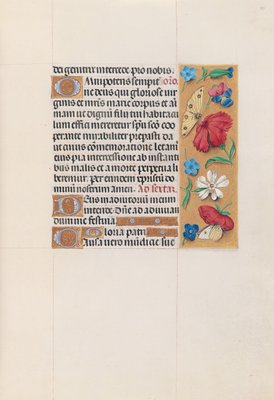 dei genitrix intercede pro nobis.
Omnipotens sempit oro.
ne deus qui gloriose uir
ginis et matris marie corpus et ai
mam ut dignū filii tui habitacu
lum effici mereretur spū scō coo
perante mirabiliter preparasti da
ut cuius cōmemoratione letam̄
eius pia intercessione ab instanti
bus malis et a morte perpetua li
beremur. Per eundem xpristū do
minū nostrum amen. Ad sextaz
Deus in adiutoriū meum
intende. Dñe ad adiuuan
dum me festina.
Gloria patri
Causa uero mūdicie sue